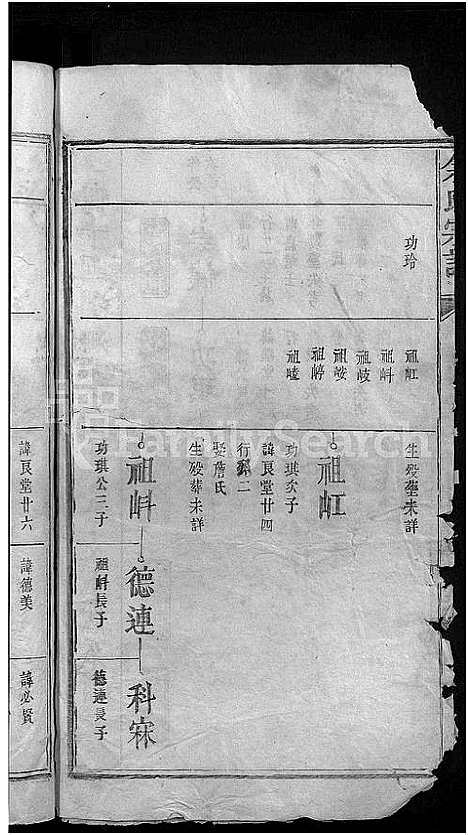 余氏宗譜
功玲
祖屸
祖㞳
祖岐
祖峖
祖嵴
生殁塟未詳
祖屸
功琪次子
諱良堂廿四
行
二
娶詹氏
生殁葬未詳
祖㞳
德連
科寀
功琪公三子
祖㞳長子
德連長子
諱良堂廿六
諱德美
諱必賢
FamilySearch